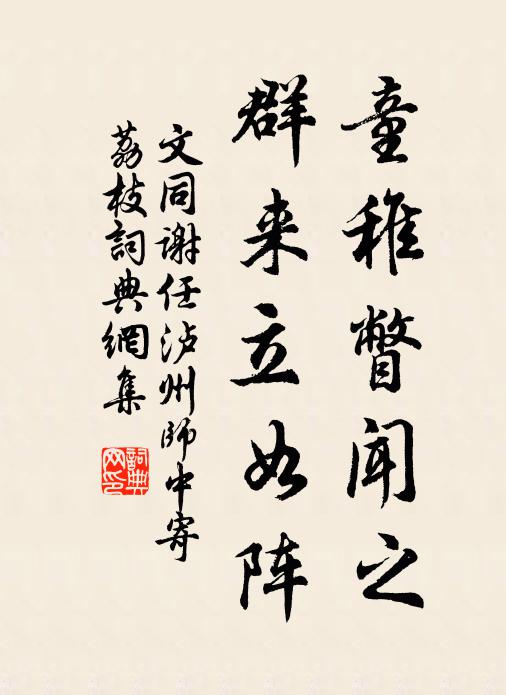 童稚瞥闻之
群来立如阵
文同谢任泸州师中寄
荔枝詞典網集
詞典网印